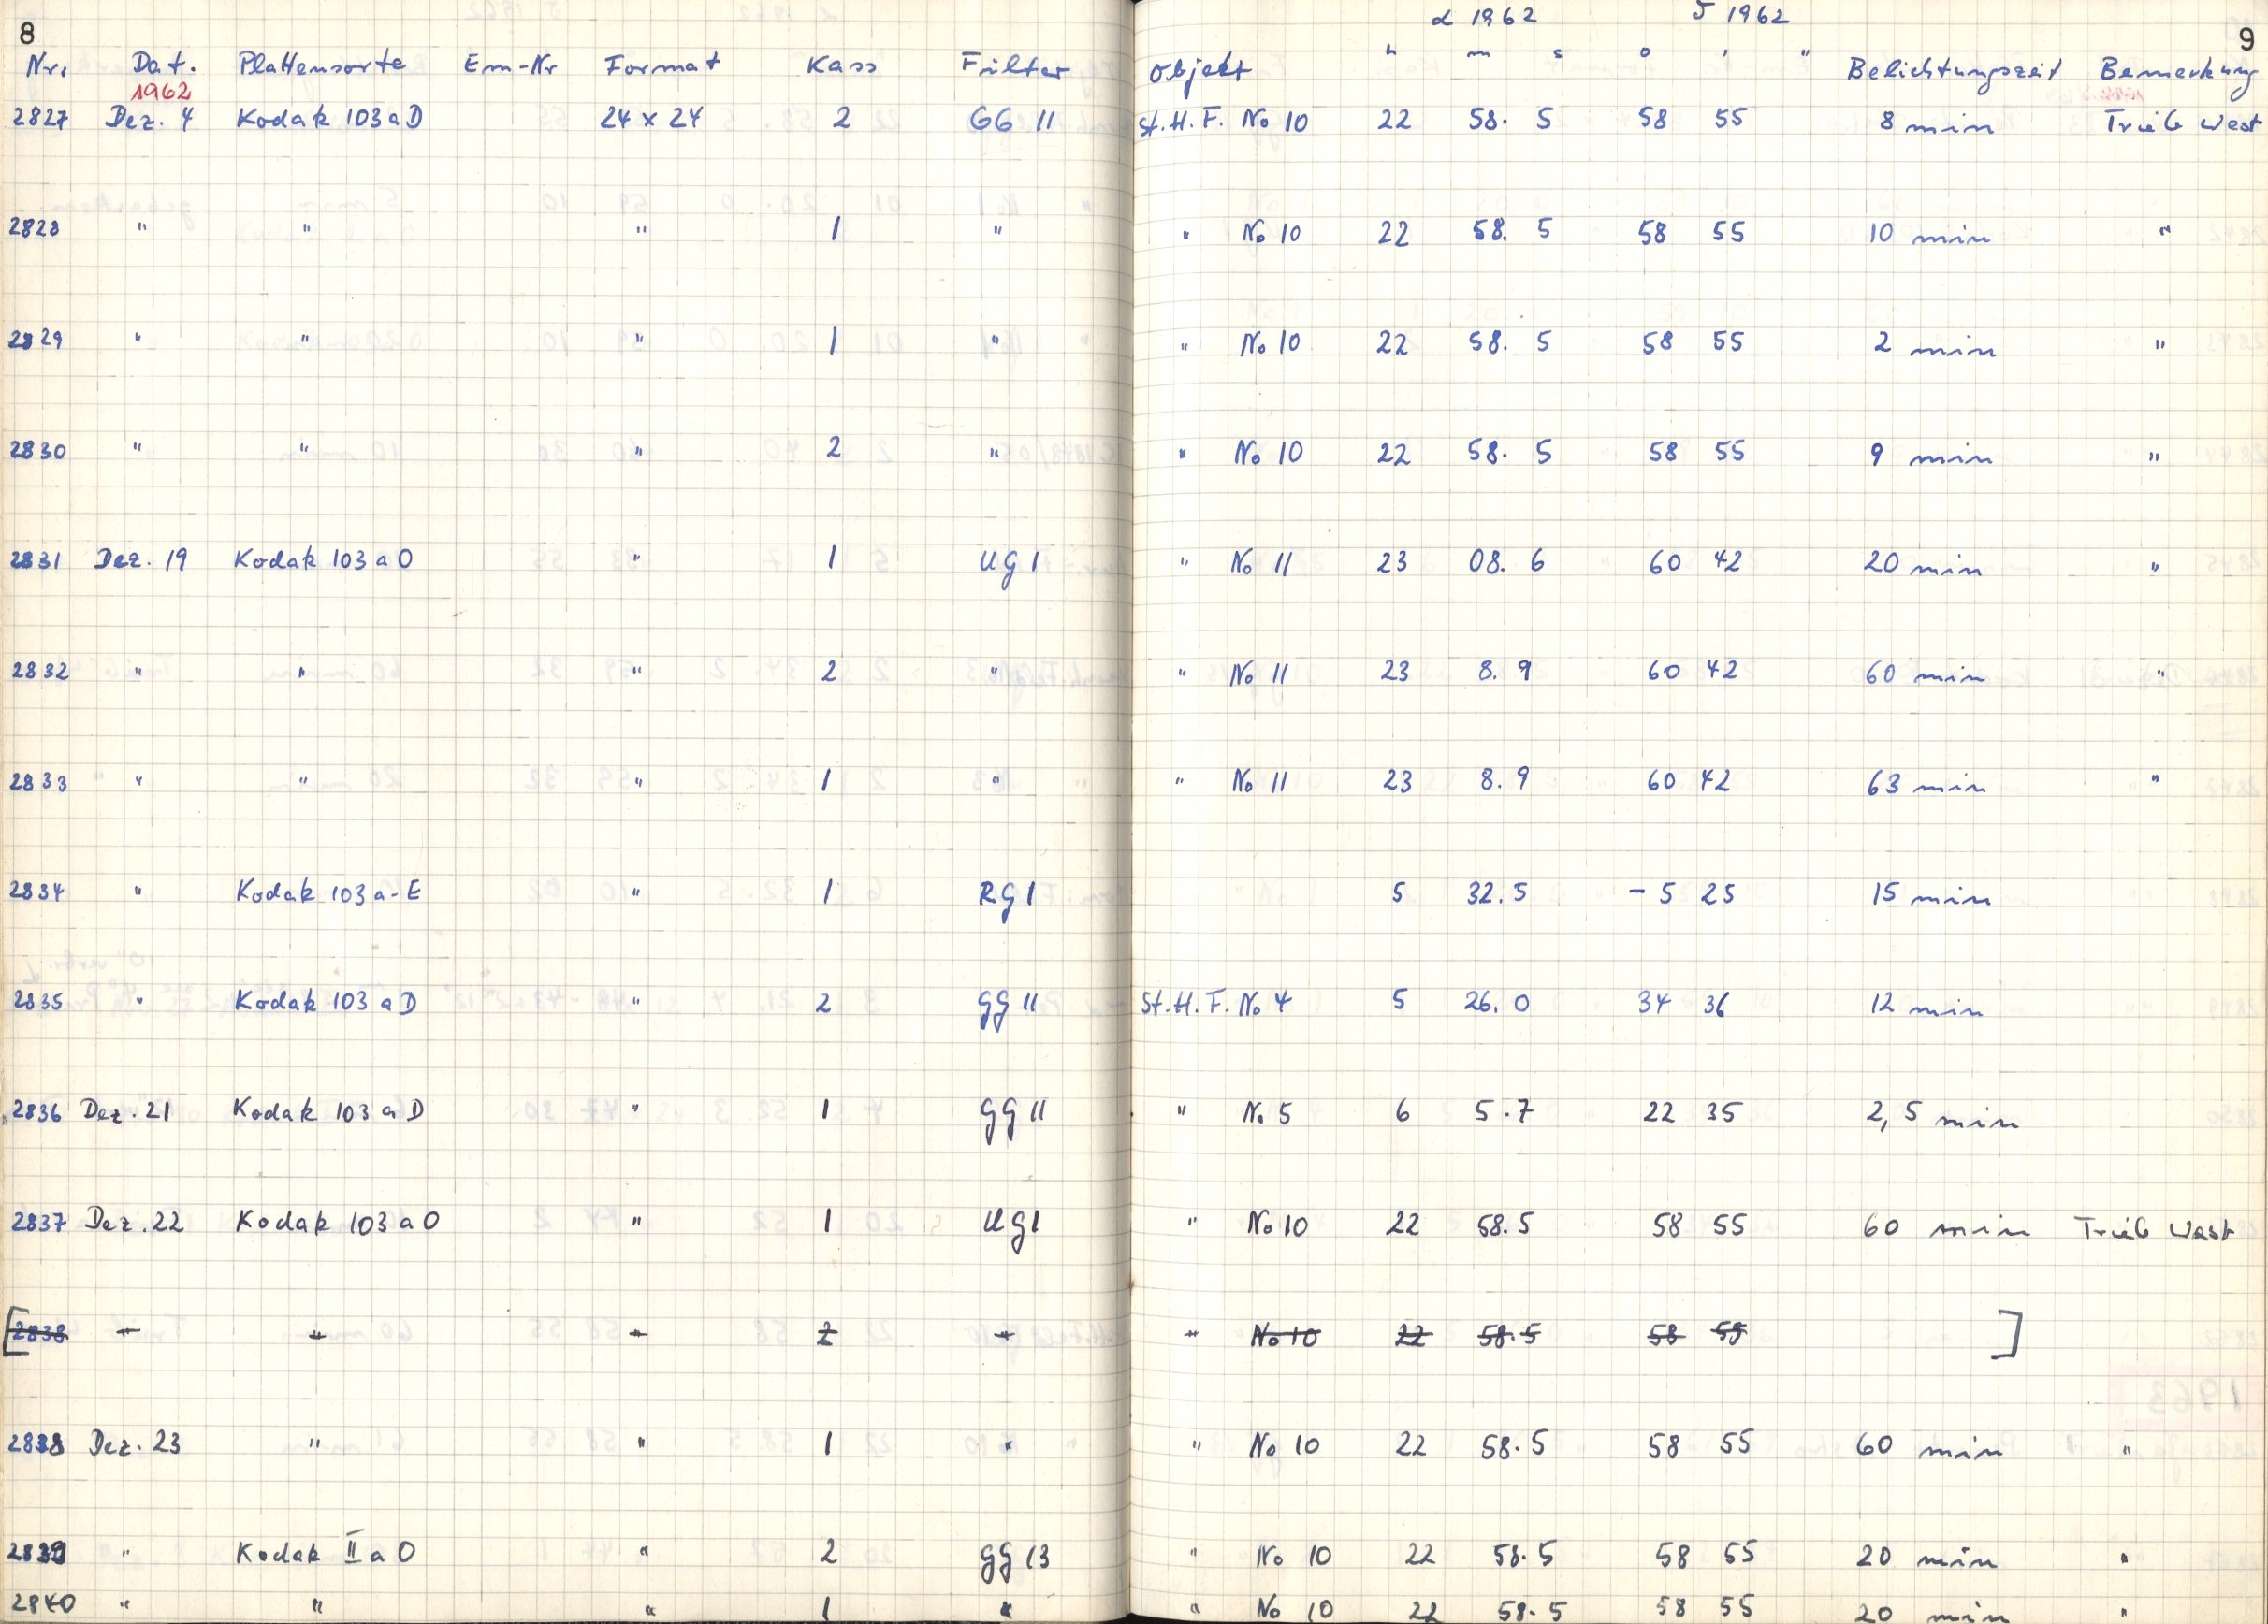 8 α 1962 δ 1962 9
Nr. Dat. Plattensorte Em-Nr Format Kass Filter Objekt h m s o ' " Belichtungszeit Bemerkung
1962
2827 Dez. 4 Kodak 103 a D 24 x 24 2 GG 11 St. H. F. No 10 22 58. 5 58 55 8 min Trieb West
2828 " " " 1 " " No 10 22 58. 5 58 55 10 min "
2829 " " " 1 " " No 10 22 58. 5 58 55 2 min "
2830 " " " 2 " " No 10 22 58. 5 58 55 9 min "
2831 Dez. 19 Kodak 103 a O " 1 UG 1 " No 11 23 08. 6 60 42 20 min "
2832 " " " 2 " " No 11 23 8. 9 60 42 60 min "
2833 " " " 1 " " No 11 23 8. 9 60 42 63 min "
2834 " Kodak 103 a-E " 1 RG 1 5 32. 5 - 5 25 15 min
2835 " Kodak 103 a D " 2 GG 11 St. H. F. No 4 5 26. 0 34 36 12 min
2836 Dez. 21 Kodak 103 a D " 1 GG 11 " No 5 6 5. 7 22 35 2,5 min
2837 Dez. 22 Kodak 103 a O " 1 UG 1 " No 10 22 58. 5 58 55 60 min Trieb West
[2838 " " " 2 " " No 10 22 58. 5 58 55 ]
2838 Dez. 23 " " 1 " " No 10 22 58. 5 58 55 60 min "
2839 " Kodak II a O " 2 GG 13 " No 10 22 58. 5 58 55 20 min "
2840 " " " 1 " " No 10 22 58. 5 58 55 20 min "